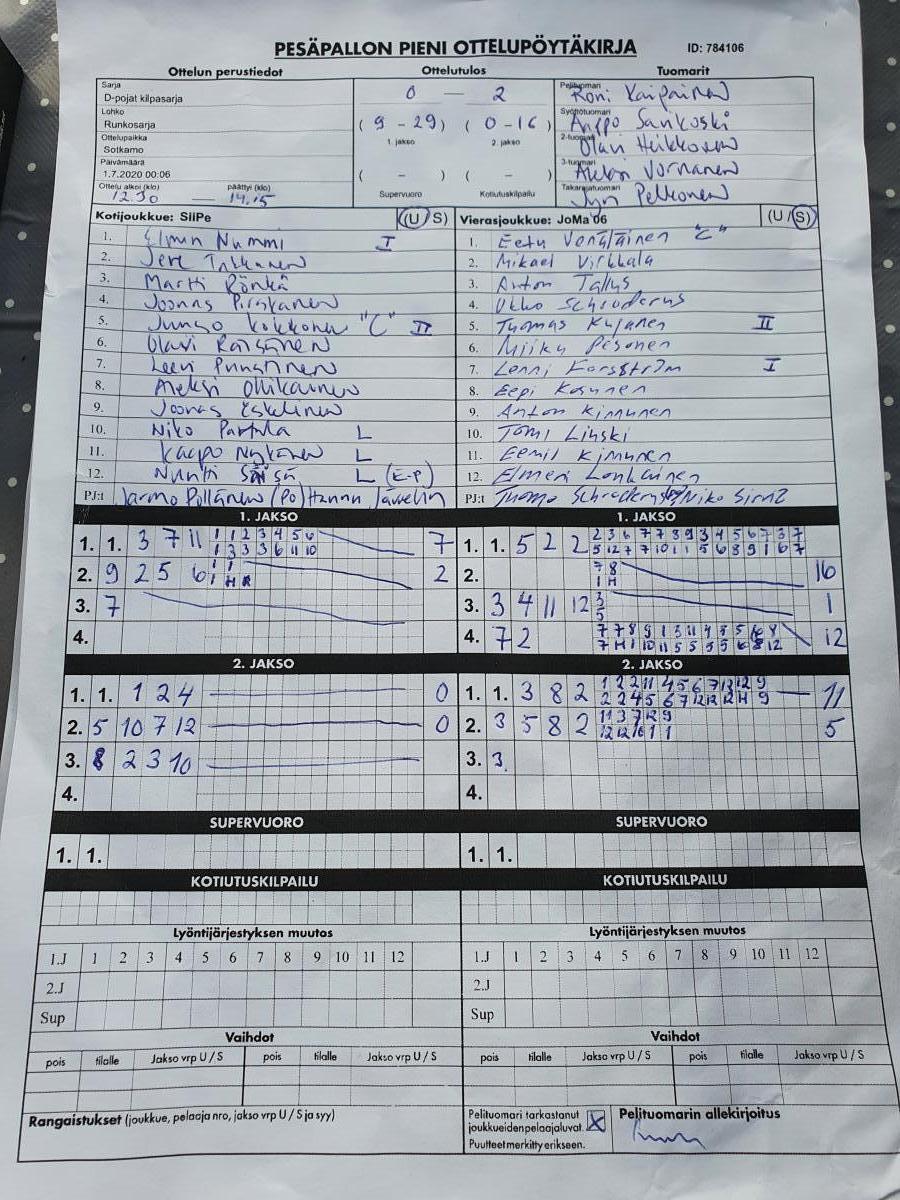 PESÄPALLON PIENI OTTELUPÖYTÄKIRJA ID: 784106
Ottelun perustiedot Ottelutulos Tuomarit
Sarja
D-pojat kilpasarja
Lohko
Runkosarja
Ottelupaikka
Sotkamo
Päivämäärä
1.7.2020 00:06
Ottelu alkoi (klo) päättyi (klo)
12.30 — 14.15
0 — 2
( 9 - 29 ) ( 0 - 16 )
1. jakso 2. jakso
( - ) ( - )
Supervuoro Kotiutuskilpailu
Pelituomari
Roni Kaipainen
Syöttötuomari
Sankoski
2-tuomari
Olavi Heikkonen
3-tuomari
Aleksi Vornanen
Takarajatuomari
Pelkonen
Kotijoukkue: SiiPe (U/S)
1. Elmin Nummi I
2. Jere
3. Martti Rönkä
4. Joonas Pirskanen
5. Kokkonen "C" II
6. Olavi Räisänen
7. Leevi
8. Aleksi Ollikainen
9. Joonas Eskelinen
10. Niko Partula L
11. Kaapo Nykänen L
12. L (E-P)
PJ:t Jarmo Pöllänen (Po) Hannu
Vierasjoukkue: JoMa'06 (U/S)
1. Eetu "C"
2. Mikael Virkkala
3. Anton Tallus
4. Ukko Schroderus
5. Thomas Kujanen II
6. Miiku Pesonen
7. Lenni Forsström I
8. Eepi Kosunen
9. Anton Kinnunen
10. Tomi Linski
11. Eemil Kinnunen
12. Elmeri Lonkainen
PJ:t Thomo Schroderus Niko
1. JAKSO
1. 1. 3 7 11 1 1 2 3 4 5 6 7
1 3 3 3 6 11 10
2. 9 2 5 6 1 1 2
3. 7
4.
1. JAKSO
1. 1. 5 2 2 2 3 6 7 7 8 9 3 4 5 6 7 3 7
5 12 7 7 10 1 1 5 6 8 9 1 6 7
2. 7 8 16
1 H
3. 3 4 11 12 3 1
5
4. 7 2 7 7 8 9 1 3 11 4 5 5 6 8 12
7 H 1 10 11 5 5 5 5 6 8 12
2. JAKSO
1. 1. 1 2 4 0
2. 5 10 7 12 0
3. 8 2 3 10
4.
2. JAKSO
1. 1. 3 8 2 1 2 2 11 4 5 6 7 12 12 9 11
2 2 4 5 6 7 12 12 12 H 9
2. 3 5 8 2 11 3 7 12 9 5
12 12 10 1 1
3. 3.
4.
SUPERVUORO SUPERVUORO
1. 1. 1. 1.
KOTIUTUSKILPAILU KOTIUTUSKILPAILU
Lyöntijärjestyksen muutos Lyöntijärjestyksen muutos
1.J 1 2 3 4 5 6 7 8 9 10 11 12 1.J 1 2 3 4 5 6 7 8 9 10 11 12
2.J 2.J
Sup Sup
Vaihdot Vaihdot
pois tilalle Jakso vrp U / S pois tilalle Jakso vrp U / S pois tilalle Jakso vrp U / S pois tilalle Jakso vrp U / S
Rangaistukset (joukkue, pelaaja nro, jakso vrp U / S ja syy)
Pelituomari tarkastanut
joukkueiden pelaajaluvat. X
Puutteet merkitty erikseen.
Pelituomarin allekirjoitus